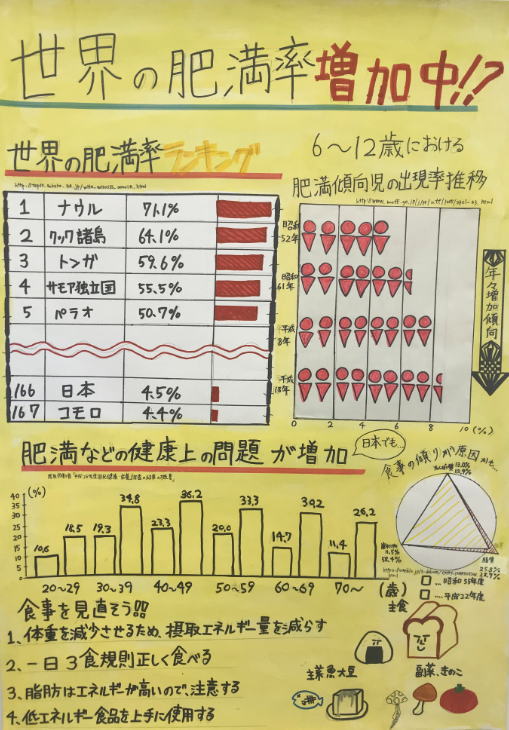 世界の肥満率増加中!!?
世界の肥満率ランキング
1 ナウル 71.1%
2 クック諸島 64.1%
3 トンガ 59.6%
4 サモア独立国 55.5%
5 パラオ 50.7%
166 日本 4.5%
167 コモロ 4.4%
6~12歳における
肥満傾向児の出現率推移
昭和
52年
昭和
61年
平成
8年
平成
18年
年々増加傾向
0 2 4 6 8 10 (%)
肥満などの健康上の問題が増加
日本でも…
(%)
40
35
30
25
20
15
10
5
0
10.6 18.5 19.3 34.8 23.3 36.2 20.0 33.3 14.7 11.4 26.2
20~29 30~39 40~49 50~59 60~69 70~ (歳)
食事の傾りが原因かも…
…昭和55年度
…平成22年度
食事を見直そう
1、体重を減少させるため、摂取エネルギー量を減らす
2、一日3食規則正しく食べる
3、脂肪はエネルギーが高いので、注意する
4、低エネルギー食品を上手に使用する
主食
主菜、魚大豆
副菜、きのこ